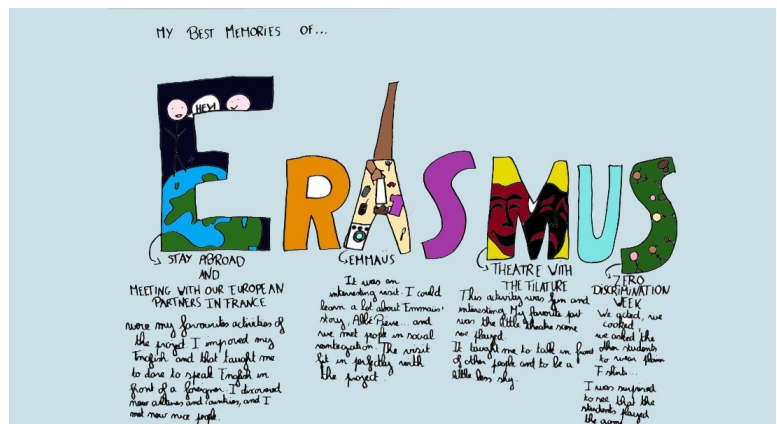 MY BEST MEMORIES OF...
HEY!
ERASMUS
STAY ABROAD
AND
MEETING WITH OUR EUROPEAN
PARTNERS IN FRANCE
were my favourite activities of
the project I improved my
English and that taught me
to dare to speak English in
front of a foreigner. I discovered
new cultures and countries, and I
met new nice people.
EMMAÜS
It was an
interesting visit. I could
learn a lot about Emmaüs'
story, Abbé Pierre... and
we met people in social
reintegration. The visit
fit in perfectly with
the project.
THEATRE WITH
THE FILATURE
This activity was fun and
interesting My favorite part
was the little theatre scene
we played.
It taught me to talk in front
of other people and to be a
little less shy.
ZERO
DISCRIMINATION
WEEK
We acted, we
cooked,
we asked the
other students
to wear
T-shirts...
I was surprised
to see that the
students played
the game